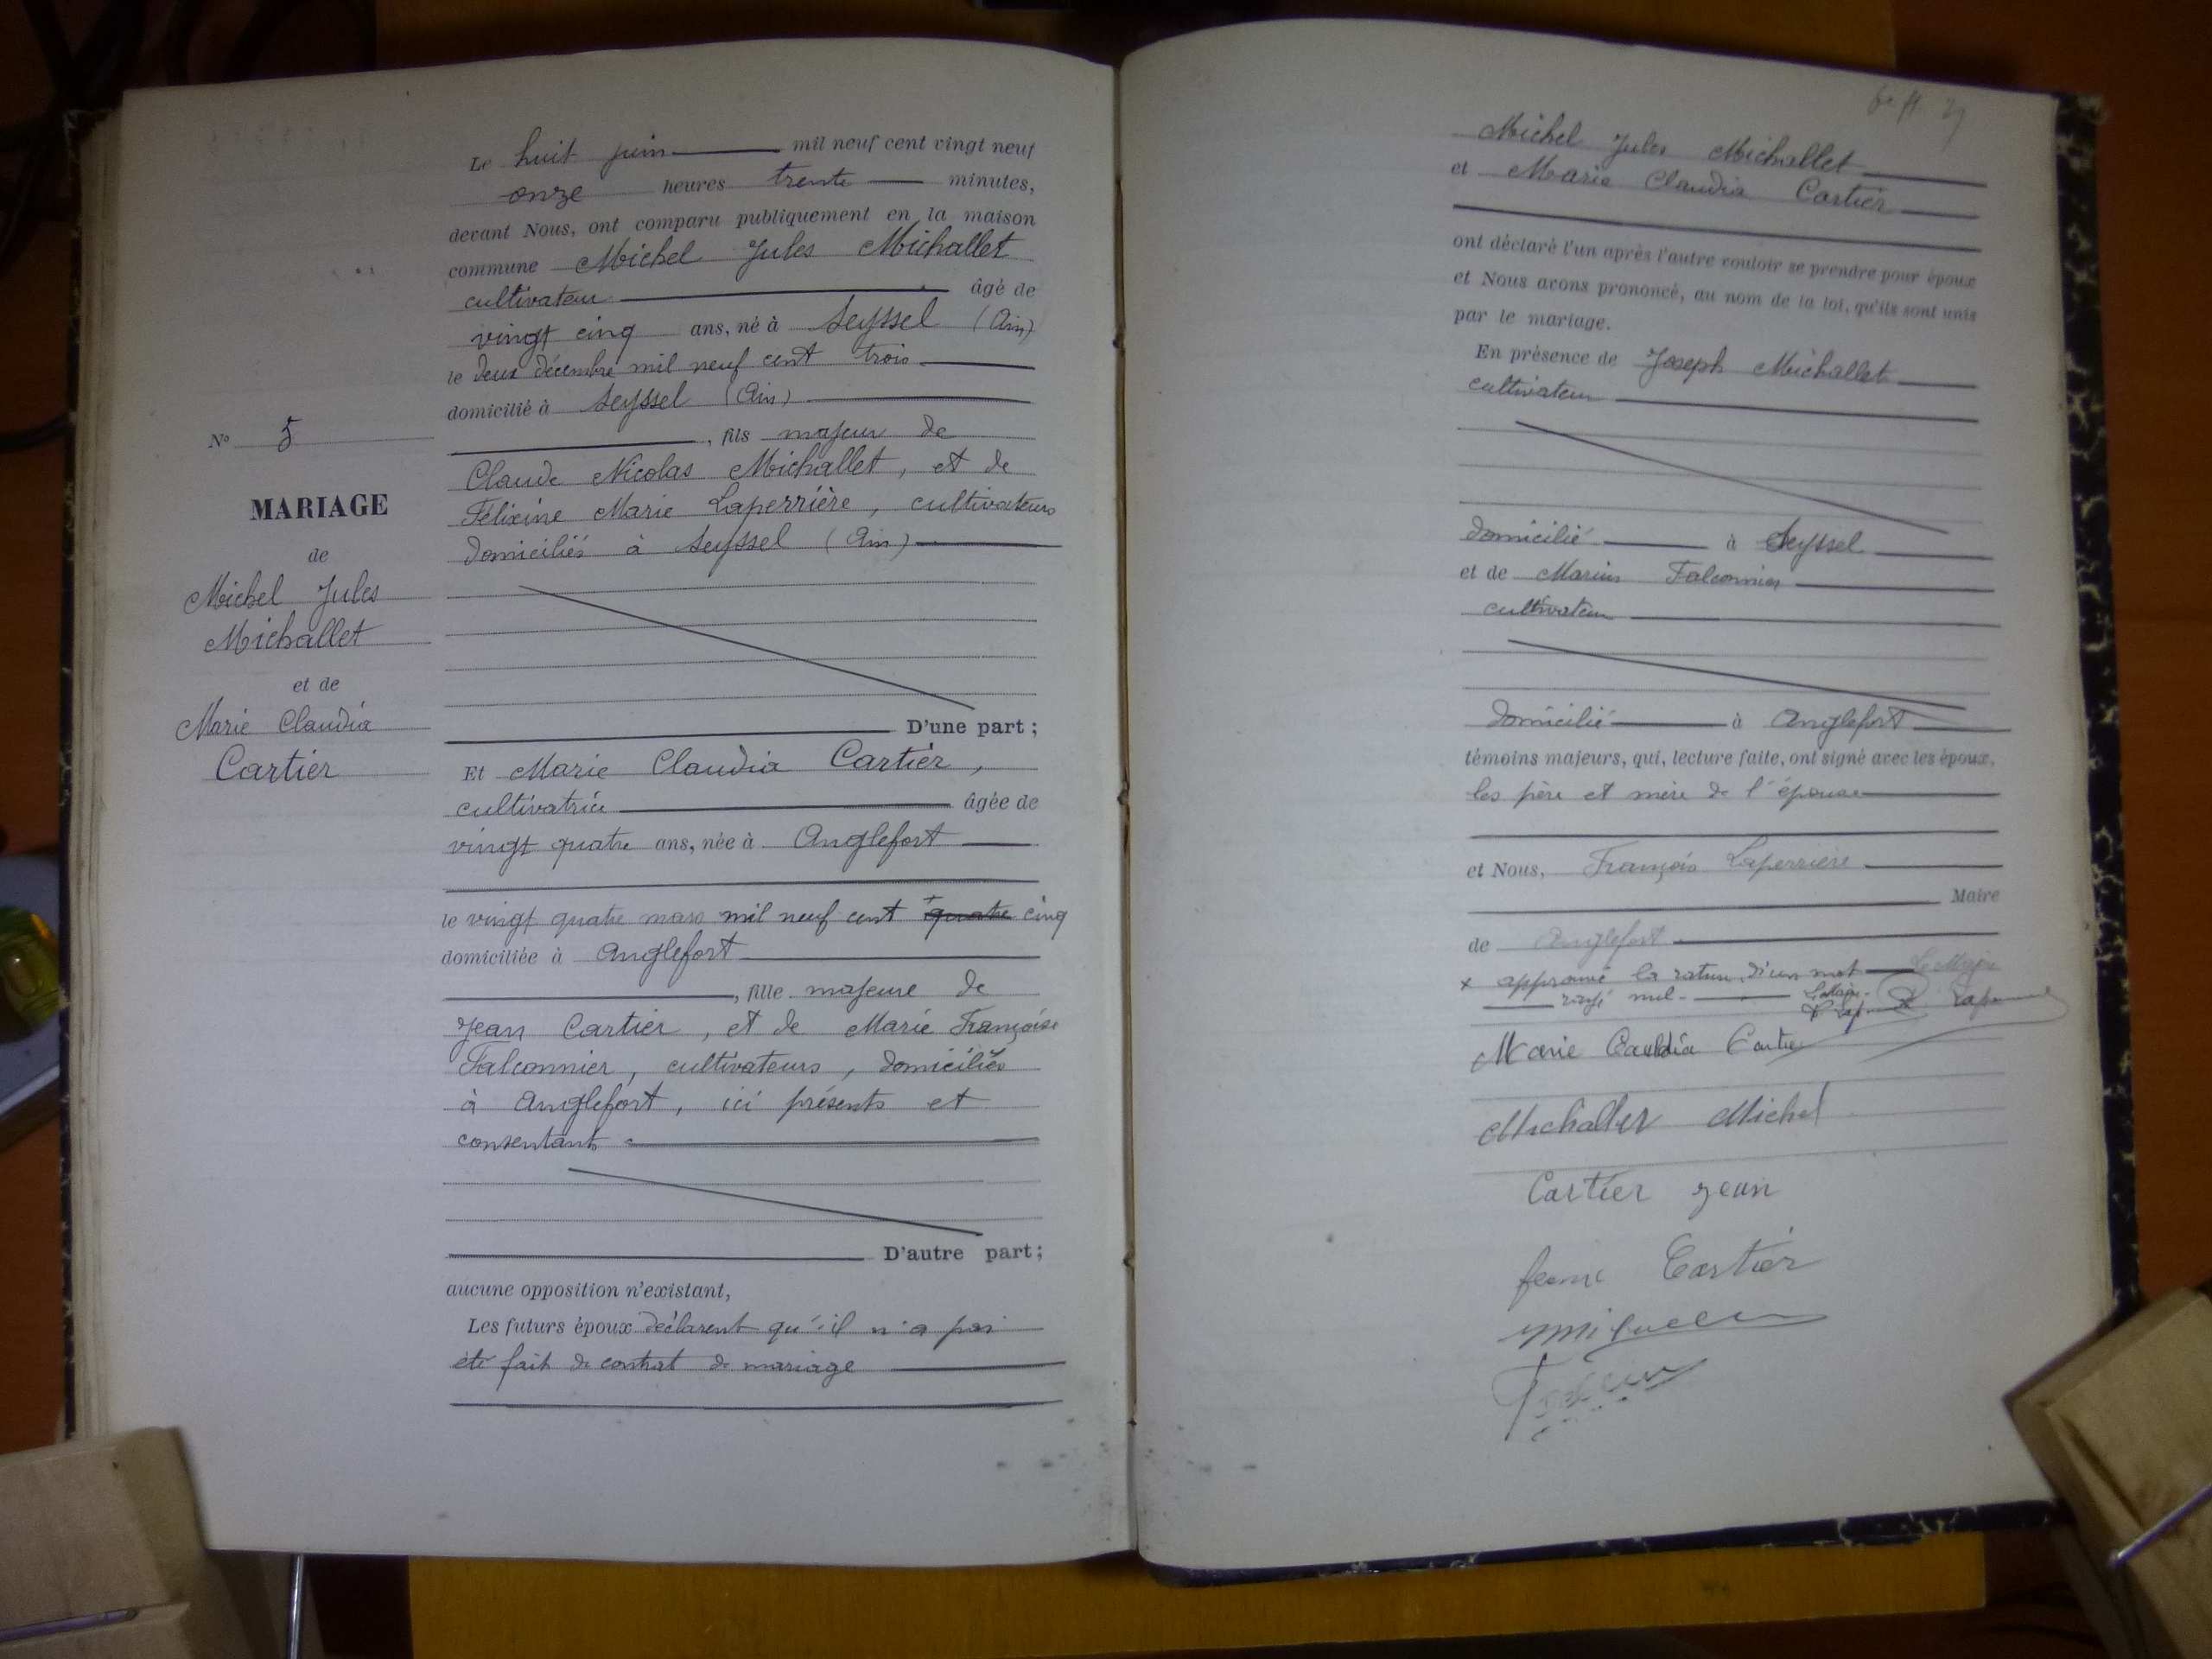 N° 5
MARIAGE
de
Michel Jules
Michallet
et de
Marie Claudia
Cartier
Le huit juin mil neuf cent vingt neuf
onze heures trente minutes,
devant Nous, ont comparu publiquement en la maison
commune Michel Jules Michallet
cultivateur âgé de
vingt cinq ans, né à Seyssel (Ain)
le deux décembre mil neuf cent trois
domicilié à Seyssel (Ain)
, fils majeur de
Claude Nicolas Michallet, et de
Félixine Marie Laperrière, cultivateurs
domiciliés à Seyssel (Ain)
D'une part ;
Et Marie Claudia Cartier,
cultivatrice âgée de
vingt quatre ans, née à Anglefort
le vingt quatre mars mil neuf cent + quatre cinq
domiciliée à Anglefort
, fille majeure de
Jean Cartier, et de Marie Françoise
Falconnier, cultivateurs, domiciliés
à Anglefort, ici présents et
consentants
D'autre part ;
aucune opposition n'existant,
Les futurs époux déclarent qu'il n'a pas
été fait de contrat de mariage
Michel Jules Michallet
et Marie Claudia Cartier
ont déclaré l'un après l'autre vouloir se prendre pour époux
et Nous avons prononcé, au nom de la loi, qu'ils sont unis
par le mariage.
En présence de Joseph Michallet
cultivateur
domicilié à Seyssel
et de Marius Falconnier
cultivateur
domicilié à Anglefort
témoins majeurs, qui, lecture faite, ont signé avec les époux,
les père et mère de l'épouse
et Nous, François Laperrière
Maire
de Anglefort
x approuvé la rature d'un mot Le Maire
rayé nul. Le Maire
Marie Caudia Cartier
Michallet Michel
Cartier Jean
feme Cartier